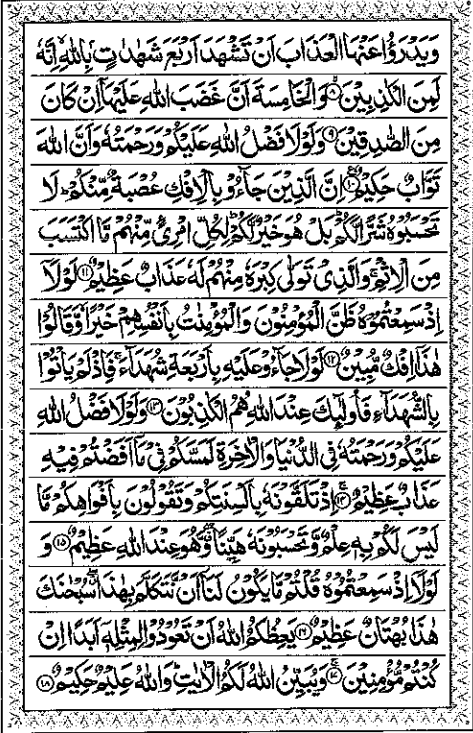 وَيَدْرَؤُا عَنْهَا الْعَذَابَ اَنْ تَشْهَدَ اَرْبَعَ شَهٰدٰتٍۭ بِاللّٰهِ ۙ اِنَّهٗ
لَمِنَ الْكٰذِبِيْنَ ۙ۝۸ وَالْخَامِسَةَ اَنَّ غَضَبَ اللّٰهِ عَلَيْهَاۤ اِنْ كَانَ
مِنَ الصّٰدِقِيْنَ ۝۹ وَلَوْلَا فَضْلُ اللّٰهِ عَلَيْكُمْ وَرَحْمَتُهٗ وَاَنَّ اللّٰهَ
تَوَّابٌ حَكِيْمٌ ۝۱۰ اِنَّ الَّذِيْنَ جَآءُوْ بِالْاِفْكِ عُصْبَةٌ مِّنْكُمْ ؕ لَا
تَحْسَبُوْهُ شَرًّا لَّكُمْ ؕ بَلْ هُوَ خَيْرٌ لَّكُمْ ؕ لِكُلِّ امْرِئٍ مِّنْهُمْ مَّا اكْتَسَبَ
مِنَ الْاِثْمِ ۚ وَالَّذِيْ تَوَلّٰى كِبْرَهٗ مِنْهُمْ لَهٗ عَذَابٌ عَظِيْمٌ ۝۱۱ لَوْلَاۤ
اِذْ سَمِعْتُمُوْهُ ظَنَّ الْمُؤْمِنُوْنَ وَالْمُؤْمِنٰتُ بِاَنْفُسِهِمْ خَيْرًا ۙ وَّقَالُوْا
هٰذَاۤ اِفْكٌ مُّبِيْنٌ ۝۱۲ لَوْلَا جَآءُوْ عَلَيْهِ بِاَرْبَعَةِ شُهَدَآءَ ۚ فَاِذْ لَمْ يَاْتُوْا
بِالشُّهَدَآءِ فَاُولٰٓئِكَ عِنْدَ اللّٰهِ هُمُ الْكٰذِبُوْنَ ۝۱۳ وَلَوْلَا فَضْلُ اللّٰهِ
عَلَيْكُمْ وَرَحْمَتُهٗ فِي الدُّنْيَا وَالْاٰخِرَةِ لَمَسَّكُمْ فِيْ مَاۤ اَفَضْتُمْ فِيْهِ
عَذَابٌ عَظِيْمٌ ۝۱۴ اِذْ تَلَقَّوْنَهٗ بِاَلْسِنَتِكُمْ وَتَقُوْلُوْنَ بِاَفْوَاهِكُمْ مَّا
لَيْسَ لَكُمْ بِهٖ عِلْمٌ وَّتَحْسَبُوْنَهٗ هَيِّنًا ۖ وَّهُوَ عِنْدَ اللّٰهِ عَظِيْمٌ ۝۱۵ وَ
لَوْلَاۤ اِذْ سَمِعْتُمُوْهُ قُلْتُمْ مَّا يَكُوْنُ لَنَاۤ اَنْ نَّتَكَلَّمَ بِهٰذَا ۖ سُبْحٰنَكَ
هٰذَا بُهْتَانٌ عَظِيْمٌ ۝۱۶ يَعِظُكُمُ اللّٰهُ اَنْ تَعُوْدُوْا لِمِثْلِهٖۤ اَبَدًا اِنْ
كُنْتُمْ مُّؤْمِنِيْنَ ۝۱۷ وَيُبَيِّنُ اللّٰهُ لَكُمُ الْاٰيٰتِ ؕ وَاللّٰهُ عَلِيْمٌ حَكِيْمٌ ۝۱۸